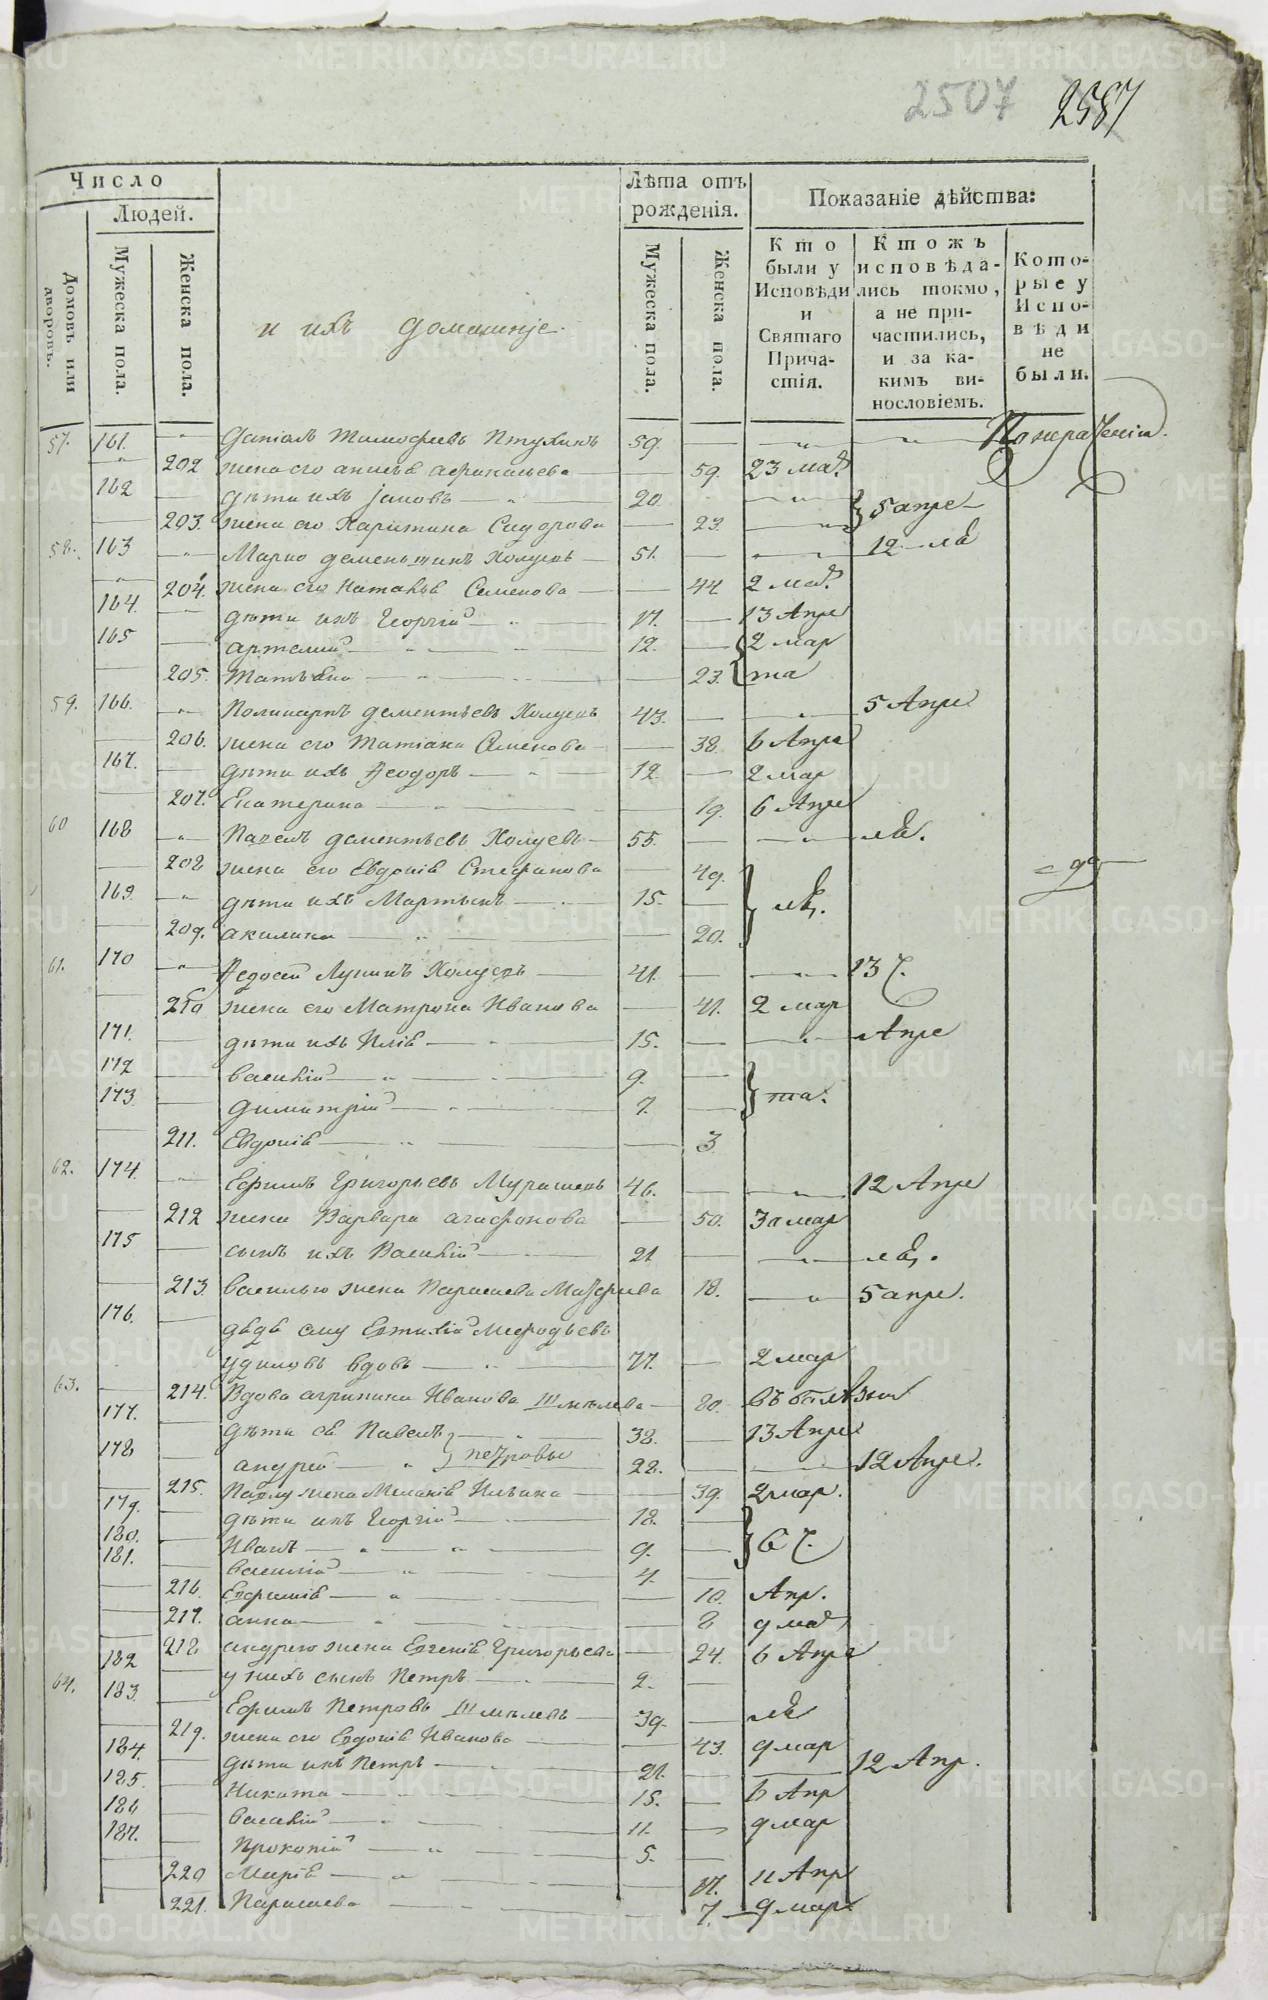 2507 2587
Число
Людей.
Домовъ или дворовъ.
Мужеска пола.
Женска пола.
и ихъ домашніе.
Лѣта отъ рожденія.
Мужеска пола.
Женска пола.
Показаніе дѣйства:
Кто были у Исповѣди и Святаго Причастія.
Ктожъ исповѣдались токмо, а не причастились, и за какимъ винословіемъ.
Которые у Исповѣди не были.
57. 161. Даніилъ Тимофеевъ Птухинъ 59.
202 жена его аписья афанасьева 59. 23 мар
162 дѣти ихъ іаковъ 20. 5 апре
203. жена его Харитина Сидорова 23.
58. 163 Марко дементьевъ Холуевъ 51. 12
204. жена его Наталья Семенова 44 2 мар
164. дѣти ихъ Георгій 17. 13 Апре
165 артемий 12. 2 мар
205. Татьяна 23. та
59. 166. Поликарпъ дементьевъ Холуевъ 43. 5 Апре
206. жена его Татіана Семенова 38. 6 Апре
167. дѣти ихъ Ѳеодоръ 12. 2 мар
207. Екатерина 19. 6 Апре
60 168 Павелъ дементьевъ Холуевъ 55.
208 жена его Евдокія Стефанова 49.
169. дѣти ихъ Мартынъ 15.
209. акилина 20.
61. 170 Ѳедосей Лукинъ Холуевъ 41. 13
210 жена его Матрона Иванова 41. 2 мар
171. дѣти ихъ Илія 15. Апре
172 Василій 9. та.
173. димитрій 7.
211. Евдокія 3
62. 174. Ефимъ Григорьевъ Мурашевъ 46. 12 Апре
212 жена Варвара агафонова 50. 30 мар
175 сынъ ихъ Василій 21
213. василью жена Параскева 18. 5 апре.
176. дѣдъ ему Евтихій Мефодьевъ
Удиловъ вдовъ 77. 2 мар
63. 214. Вдова агрипина Иванова Шмелева 80. въ болѣзни
177. дѣти ея Павелъ 38. 13 Апре
178 андрей петровы 28. 12 Апре.
215. Павлу жена Меланія Ильина 39. 2 мар.
179. дѣти ихъ Георгій 18.
180. Иванъ 9. 6
181. василій 4.
216. Ефимія 10. Апр.
217. анна 8 9 мар
218 андрею жена Евгенія Григорьева 24. 6 Апре
182 у нихъ сынъ Петръ 2.
64. 183. Ефимъ Петровъ Шмелевъ 39.
219. жена его Евдокія Иванова 43. 9 мар
184. дѣти ихъ Петръ 21. 12 Апр.
185. Никита 15. 6 Апр
186 василій 11. 9 мар
187. Прокопій 5.
220 Марія 17. 11 Апр
221. Параскева 7. 9 мар.